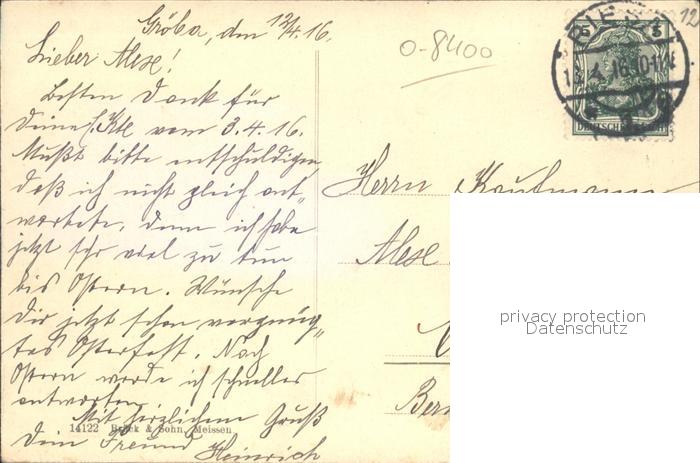 Gröba, den 12/4. 16.
Lieber Alex!
Besten Dank für
deine l. Kte vom 3.4.16.
Mußt bitte entschuldigen,
daß ich nicht gleich ant„
wortete, denn ich habe
jetzt sehr viel zu tun
bis Ostern. Wünsche
dir jetzt schon vergnüg„
tes Osterfest. Nach
Ostern werde ich schneller
antworten.
Mit herzlichem Gruß
Dein Freund Heinrich
14122 Brück & Sohn, Meissen
O-8400
12
RIESA
16.10-11
DEUTSCHES REICH
5 5
Herrn Kaufmann
Alex
Ber
privacy protection
Datenschutz